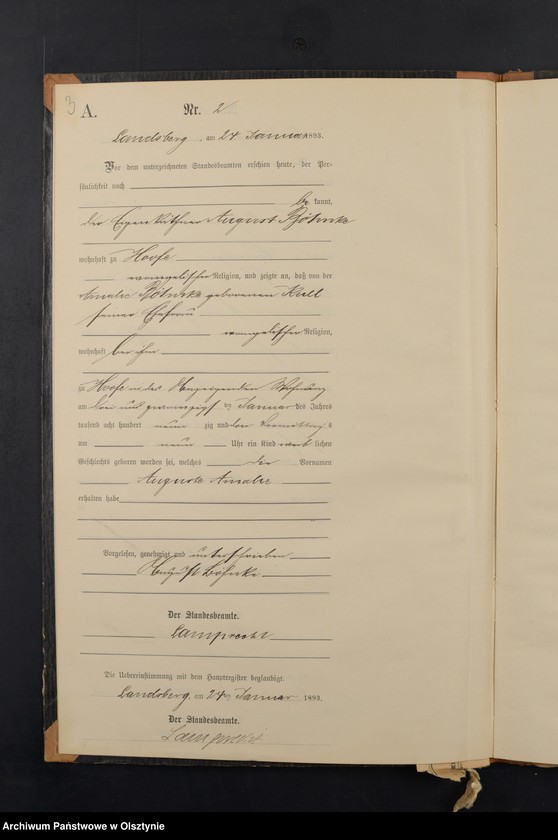 3
A. Nr. 2
Landsberg, am 24. Januar 1893.
Vor dem unterzeichneten Standesbeamten erschien heute, der Per-
sönlichkeit nach
be kannt,
der August Böhnke
wohnhaft zu Hoofe
evangelischer Religion, und zeigte an, daß von der
Amalie Böhnke geborenen Krull
seiner Ehefrau
evangelischer Religion,
wohnhaft bei ihm
zu Hoofe in der Wohnung
am drei und zwanzigsten Januar des Jahres
tausend acht hundert neun zig und drei Vormittags
um neun Uhr ein Kind weib lichen
Geschlechts geboren worden sei, welches die Vornamen
Auguste Amalie
erhalten habe
Vorgelesen, genehmigt und unterschrieben
August Böhnke
Der Standesbeamte.
Lamprecht
Die Uebereinstimmung mit dem Hauptregister beglaubigt.
Landsberg, am 24ten Januar 1893.
Der Standesbeamte.
Lamprecht
Archiwum Państwowe w Olsztynie